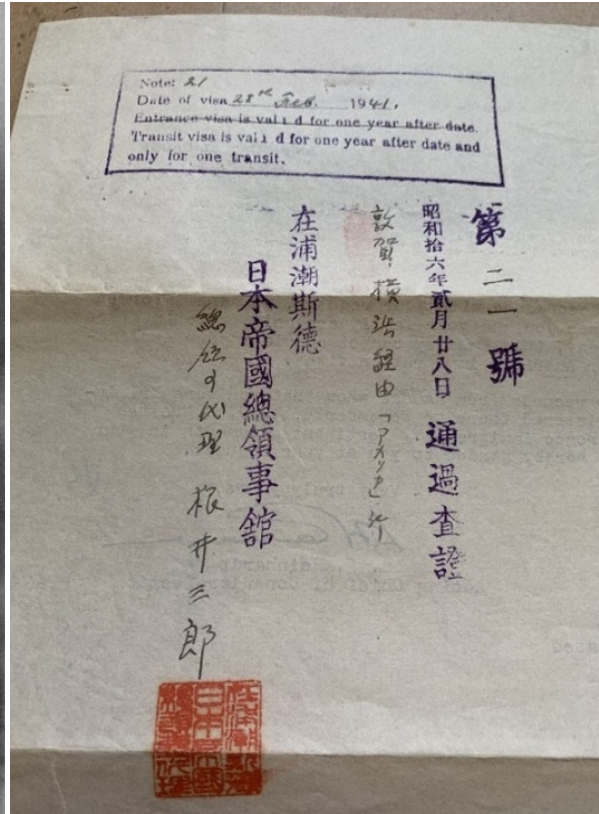 Note: 21
Date of visa 28th Feb. 1941.
Entrance visa is vali d for one year after date.
Transit visa is vali d for one year after date and
only for one transit.
第二一號
昭和拾六年貳月廿八日 通過査證
敦賀橫浜経由「アメリカ」行
在浦潮斯德
日本帝國總領事館
總領事代理 根井三郎